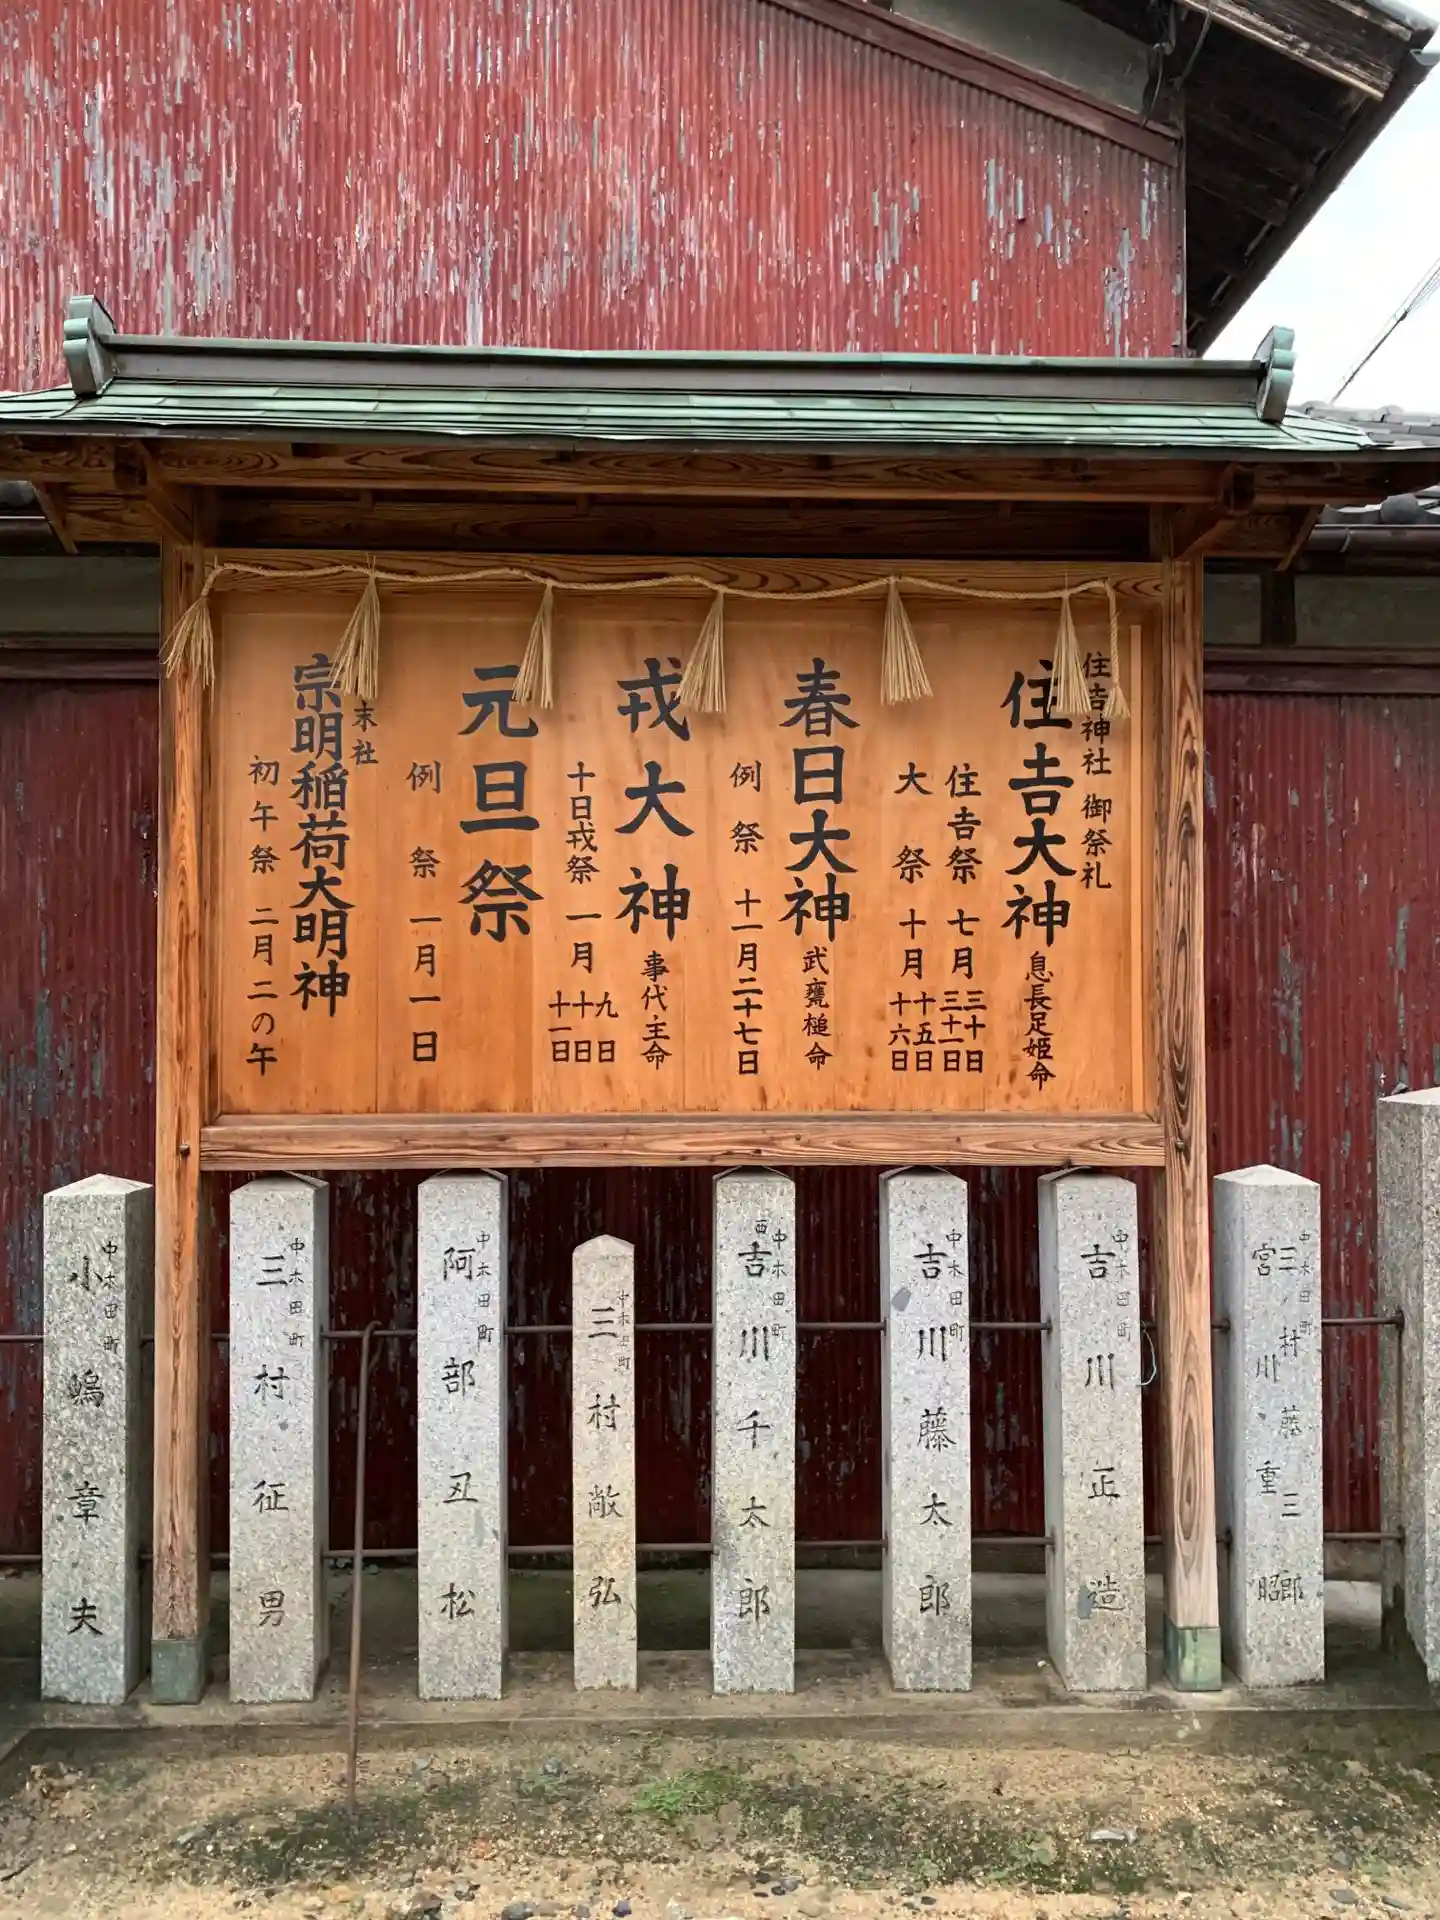 住吉神社 御祭礼
住吉大神 息長足姫命
住吉祭 七月 三十日 三十一日
大祭 十月 十五日 十六日
春日大神 武甕槌命
例祭 十一月二十七日
戎大神 事代主命
十日戎祭 一月 九日 十日 十一日
元旦祭
例祭 一月一日
末社
宗明稲荷大明神
初午祭 二月二の午
中木田町
三村藤三郎
宮川重昭
中木田町
吉川正造
中木田町
吉川藤太郎
西中木田町
吉川千太郎
中木田町
三村敞弘
中木田町
阿部丑松
中木田町
三村征男
中木田町
小嶋章夫